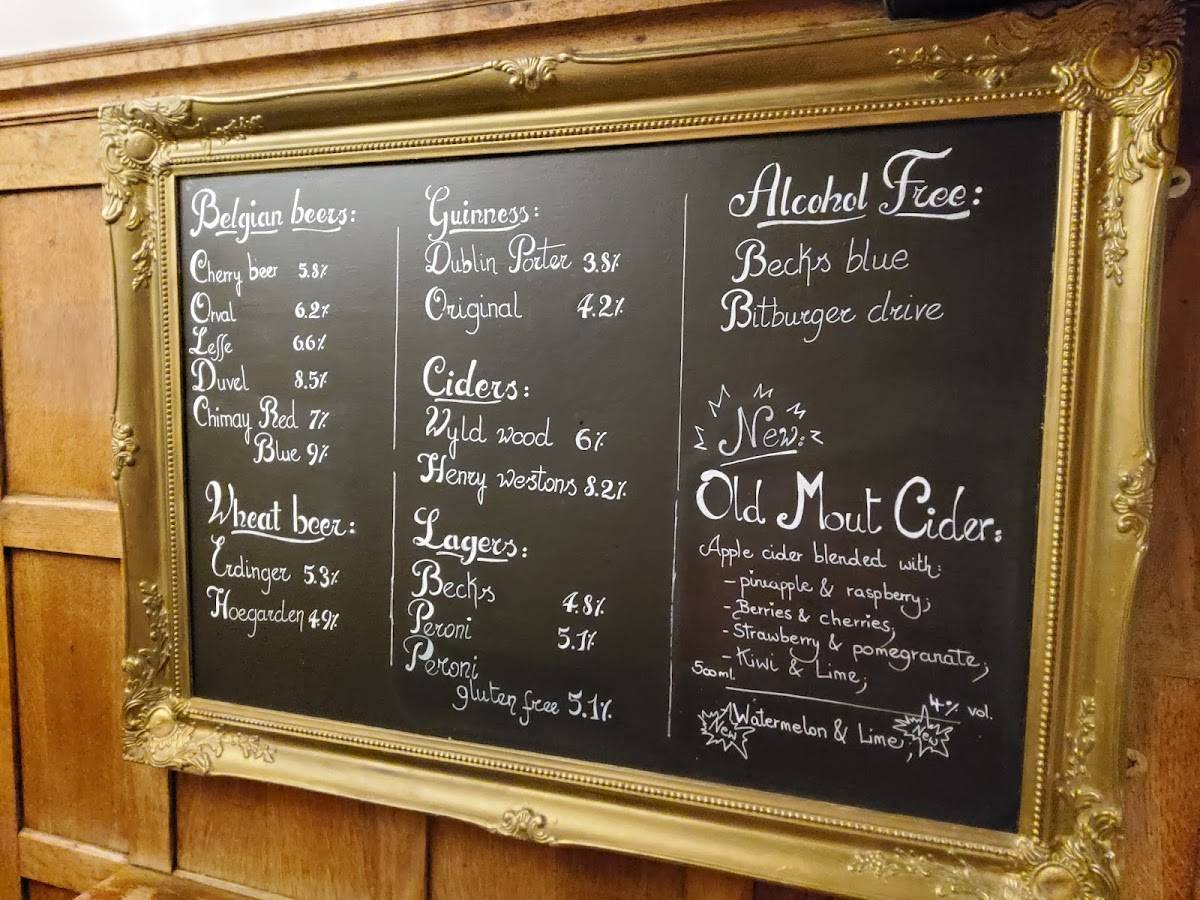 Belgian beers:
Cherry beer 5.8%
Orval 6.2%
Leffe 6.6%
Duvel 8.5%
Chimay Red 7%
Blue 9%
Wheat beer:
Erdinger 5.3%
Hoegarden 4.9%
Guinness:
Dublin Porter 3.8%
Original 4.2%
Ciders:
Wyld wood 6%
Henry westons 8.2%
Lagers:
Becks 4.8%
Peroni 5.1%
Peroni
gluten free 5.1%
Alcohol Free:
Becks blue
Bitburger drive
New:
Old Mout Cider:
Apple cider blended with:
- pineapple & raspberry;
- Berries & cherries;
- Strawberry & pomegranate;
- Kiwi & Lime;
500ml. 4% vol.
New Watermelon & Lime; New